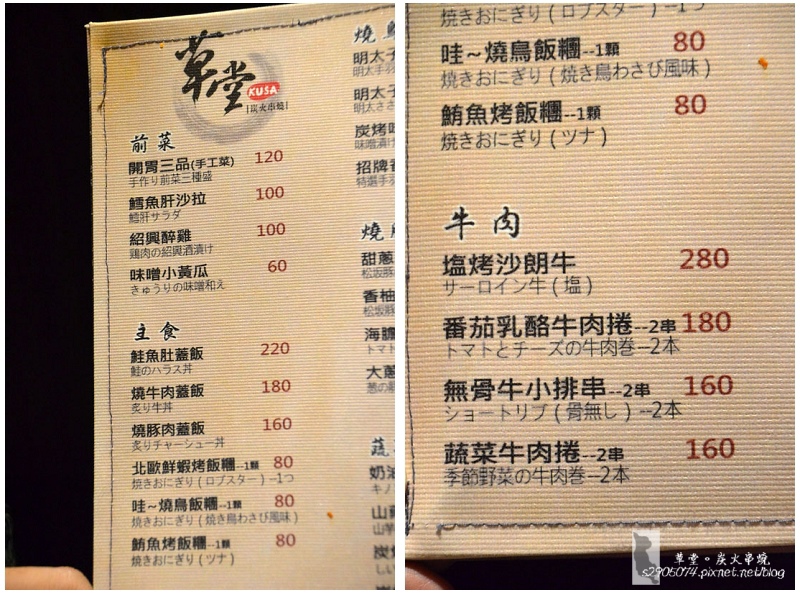 草堂
KUSA
炭火串燒
前菜
開胃三品(手工菜) 120
手作り前菜三種盛
鱈魚肝沙拉 100
鱈肝サラダ
紹興醉雞 100
鶏肉の紹興酒漬け
味噌小黃瓜 60
きゅうりの味噌和え
主食
鮭魚肚蓋飯 220
鮭のハラス丼
燒牛肉蓋飯 180
炙り牛丼
燒豚肉蓋飯 160
炙りチャーシュー丼
北歐鮮蝦烤飯糰--1顆 80
焼きおにぎり(ロブスター)--1つ
哇~燒鳥飯糰--1顆 80
焼きおにぎり(焼き鳥わさび風味)
鮪魚烤飯糰--1顆 80
焼きおにぎり(ツナ)
明太子
明太子
炭烤
味噌漬け
招牌
甜蔥
松坂豚
香柚
松坂豚
海膽
トマト
大蔥
奶油
キノ
焼きおにぎり(ロブスター)--1つ
哇~燒鳥飯糰--1顆 80
焼きおにぎり(焼き鳥わさび風味)
鮪魚烤飯糰--1顆 80
焼きおにぎり(ツナ)
牛肉
塩烤沙朗牛 280
サーロイン牛(塩)
番茄乳酪牛肉捲--2串 180
トマトとチーズの牛肉巻--2本
無骨牛小排串--2串 160
ショートリブ(骨無し)--2本
蔬菜牛肉捲--2串 160
季節野菜の牛肉巻--2本
草堂。炭火串燒
s2905074.pixnet.net/blog